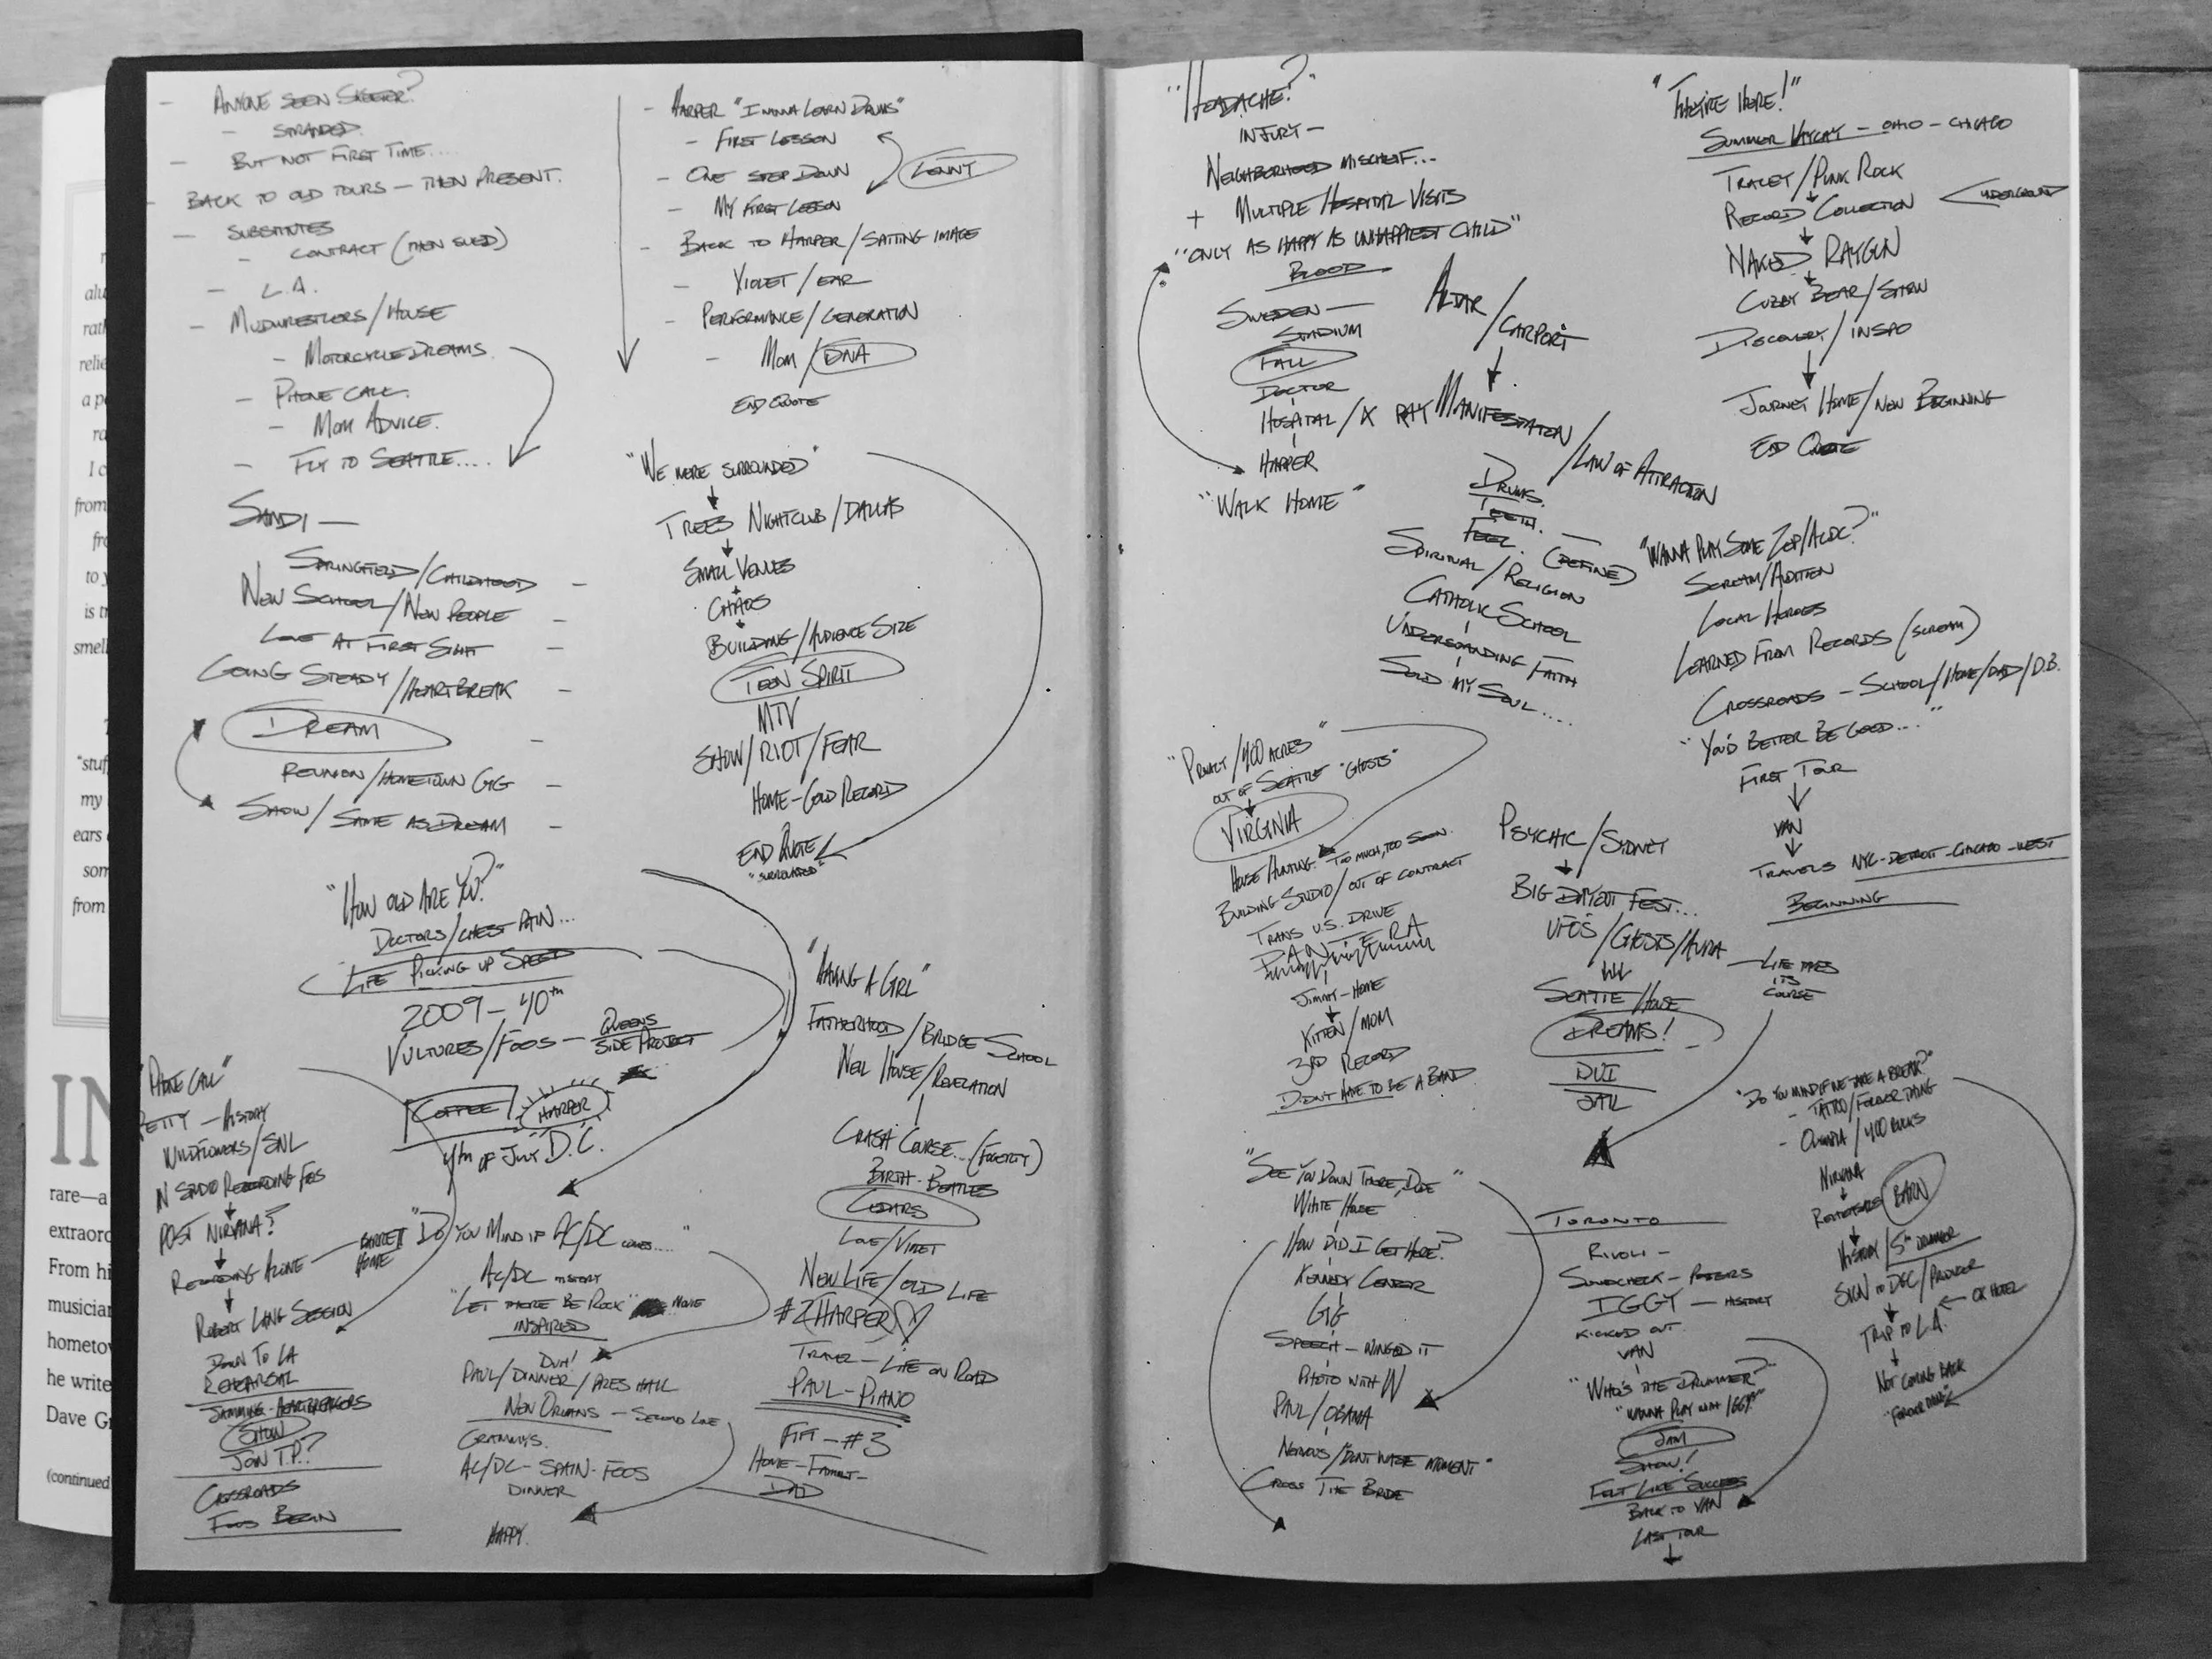 - ANYONE SEEN SKEETER?
- STRANDED.
- BUT NOT FIRST TIME....
- BACK TO OLD TOURS – THEN PRESENT.
- SUBSTITUTES
- CONTRACT (THEN SUED)
- L.A.
- MUDWRESTLERS/HOUSE
- MOTORCYCLE DREAMS
- PHONE CALL.
- MOM ADVICE.
- FLY TO SEATTLE....
SANDI –
SPRINGFIELD/CHILDHOOD –
NEW SCHOOL/NEW PEOPLE –
LOVE AT FIRST SIGHT –
GOING STEADY/HEARTBREAK –
DREAM –
REUNION/HOMETOWN GIG –
SHOW/SAME AS DREAM –
- HARPER "I WANNA LEARN DRUMS"
- FIRST LESSON
- ONE STEP DOWN
LENNY
- MY FIRST LESSON
- BACK TO HARPER/SITTING IMAGE
- VIOLET/EAR
- PERFORMANCE/GENERATION
- MOM/DNA
END QUOTE
"WE WERE SURROUNDED"
TREES NIGHTCLUB/DALLAS
SMALL VENUES
CHAOS
BUILDING/AUDIENCE SIZE
TEEN SPIRIT
MTV
SHOW/RIOT/FEAR
HOME – GOLD RECORD
END QUOTE
"SURROUNDED"
"HOW OLD ARE YOU?"
DOCTORS/CHEST PAIN...
LIFE PICKING UP SPEED
2009 – 40TH
VULTURES/FOOS – QUEENS
SIDE PROJECT
COFFEE/HARPER
4TH OF JULY D.C.
"PHONE CALL"
PETTY – HISTORY
WILDFLOWERS/SNL
IN STUDIO RECORDING FOOS
POST NIRVANA?
RECORDING ALONE – BARRETT
HOME
ROBERT LANG SESSION
DOWN TO LA
REHEARSAL
JAMMING – HEARTBREAKERS
SHOW
JOIN T.P.?
CROSSROADS
FOOS BEGIN
"DO YOU MIND IF AC/DC COMES...."
AC/DC HISTORY
"LET THERE BE ROCK" MOVIE
INSPIRED
DUH!
PAUL/DINNER/PRES HALL
NEW ORLEANS – SECOND LINE
GRAMMYS.
AC/DC – SPAIN – FOOS
DINNER
HAPPY.
"HAVING A GIRL"
FATHERHOOD/BRIDGE SCHOOL
NEIL HOUSE/REVELATION
CRASH COURSE... (FOGERTY)
BIRTH – BEATLES
CEDARS
LOVE/VIOLET
NEW LIFE/OLD LIFE
#2 (HARPER)
TRAVEL – LIFE ON ROAD
PAUL – PIANO
#3
HOME – FAMILY –
DAD
"HEADACHE?"
INJURY –
NEIGHBORHOOD MISCHEIF...
+ MULTIPLE HOSPITAL VISITS
"ONLY AS HAPPY AS UNHAPPIEST CHILD"
BLOOD
SWEDEN –
STADIUM
FALL
DOCTOR
HOSPITAL/X RAY
HARPER
"WALK HOME"
ALTAR/CARPORT
MANIFESTATION/LAW OF ATTRACTION
DRUMS.
TEETH.
FEEL. –
SPIRITUAL/RELIGION (DEFINED)
CATHOLIC SCHOOL
UNDERSTANDING FAITH
SOLD MY SOUL....
"THEY'RE HERE!"
SUMMER VAYCAY – OHIO – CHICAGO
TRACEY/PUNK ROCK
RECORD COLLECTION
UNDERGROUND
NAKED RAYGUN
CUBBY BEAR/SHOW
DISCOVERY/INSPO
JOURNEY HOME/NEW BEGINNING
END QUOTE
"WANNA PLAY SOME ZEP/ACDC?"
SCREAM/AUDITION
LOCAL HEROES
LEARNED FROM RECORDS (SCREAM)
CROSSROADS – SCHOOL/HOME/DAD/D.B.
"YOU'D BETTER BE GOOD..."
FIRST TOUR
VAN
TRAVELS NYC-DETROIT-CHICAGO-WEST
BEGINNING
400 ACRES"
OUT OF SEATTLE "GHOSTS"
VIRGINIA
HOUSE HUNTING. TOO MUCH, TOO SOON
BUILDING STUDIO/OUT OF CONTRACT
TRANS U.S. DRIVE
PANTERA
JIMMY – HOME
KITTEN/MOM
3RD RECORD
DIDN'T HAVE TO BE A BAND
PSYCHIC/SYDNEY
BIG DAY OUT FEST...
UFO'S/GHOSTS/AURA
SEATTLE/HOUSE
DREAMS!
DUI
JAIL
LIFE TAKES
ITS
COURSE
"SEE YOU DOWN THERE, DUDE"
WHITE HOUSE
HOW DID I GET HERE?
KENNEDY CENTER
GIG
SPEECH – WINGED IT
PHOTO WITH W
PAUL/OBAMA
NERVOUS/"DON'T WASTE MOMENT"
CROSS THE BRIDGE
TORONTO
RIVOLI –
SOUNDCHECK – POSTERS
IGGY – HISTORY
KICKED OUT
VAN
"WHO'S THE DRUMMER?"
"WANNA PLAY WITH IGGY?"
JAM
SHOW!
FELT LIKE SUCCESS
BACK TO VAN
LAST TOUR
"DO YOU MIND IF WE TAKE A BREAK?"
- TATTOO/FOREVER THING
- OLYMPIA/400 BUCKS
NIRVANA
REHEARSALS BARN
HISTORY/5TH DRUMMER
SIGN TO DGC/PRODUCER
OK HOTEL
TRIP TO L.A.
NOT COMING BACK